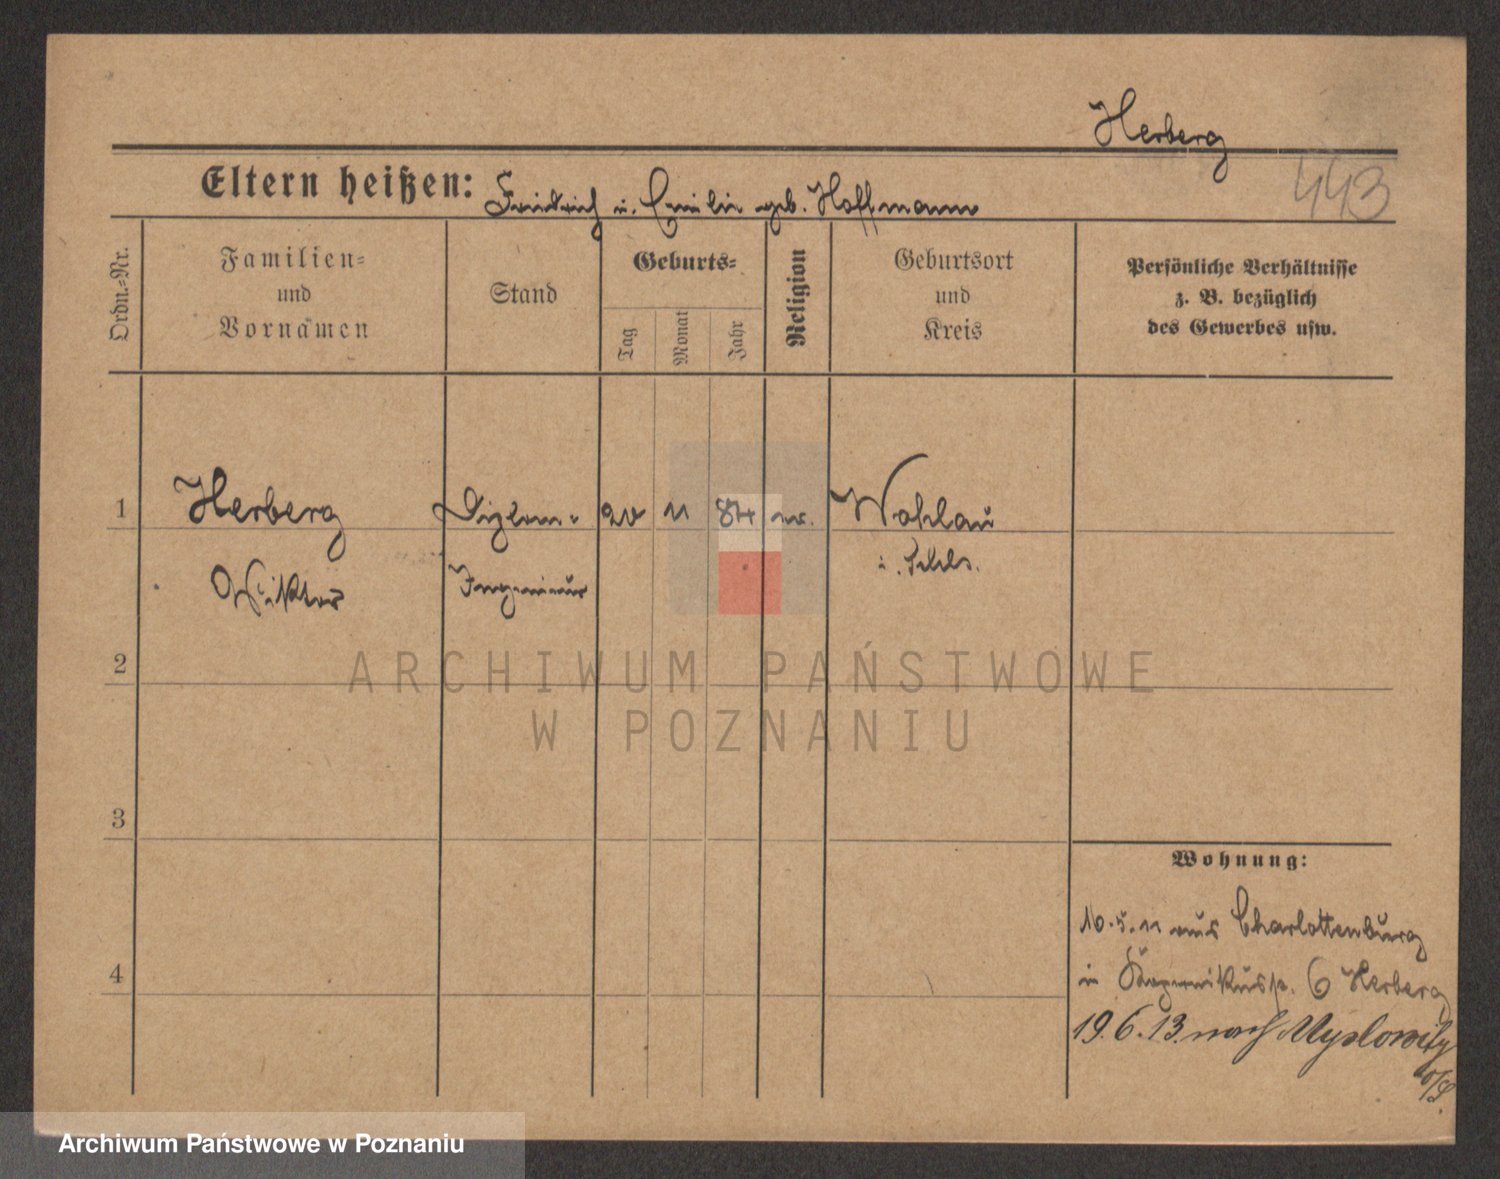 Herberg
443
Eltern heißen: Friedrich u. Emilie geb. Hoffmann
Ordn.-Nr.
Familien-
und
Vornamen
Stand
Geburts-
Tag
Monat
Jahr
Religion
Geburtsort
und
Kreis
Persönliche Verhältnisse
z. B. bezüglich
des Gewerbes usw.
1 Herberg Diplom- 20 11 84 ev. Wohlau
Viktor Ingenieur i. Schls.
2
3
4
Wohnung:
16.5.11 aus Charlottenburg
in Kopernikusstr. 6 Herberg
19.6.13. nach Myslowitz
o/S.
ARCHIWUM PAŃSTWOWE
W POZNANIU
Archiwum Państwowe w Poznaniu